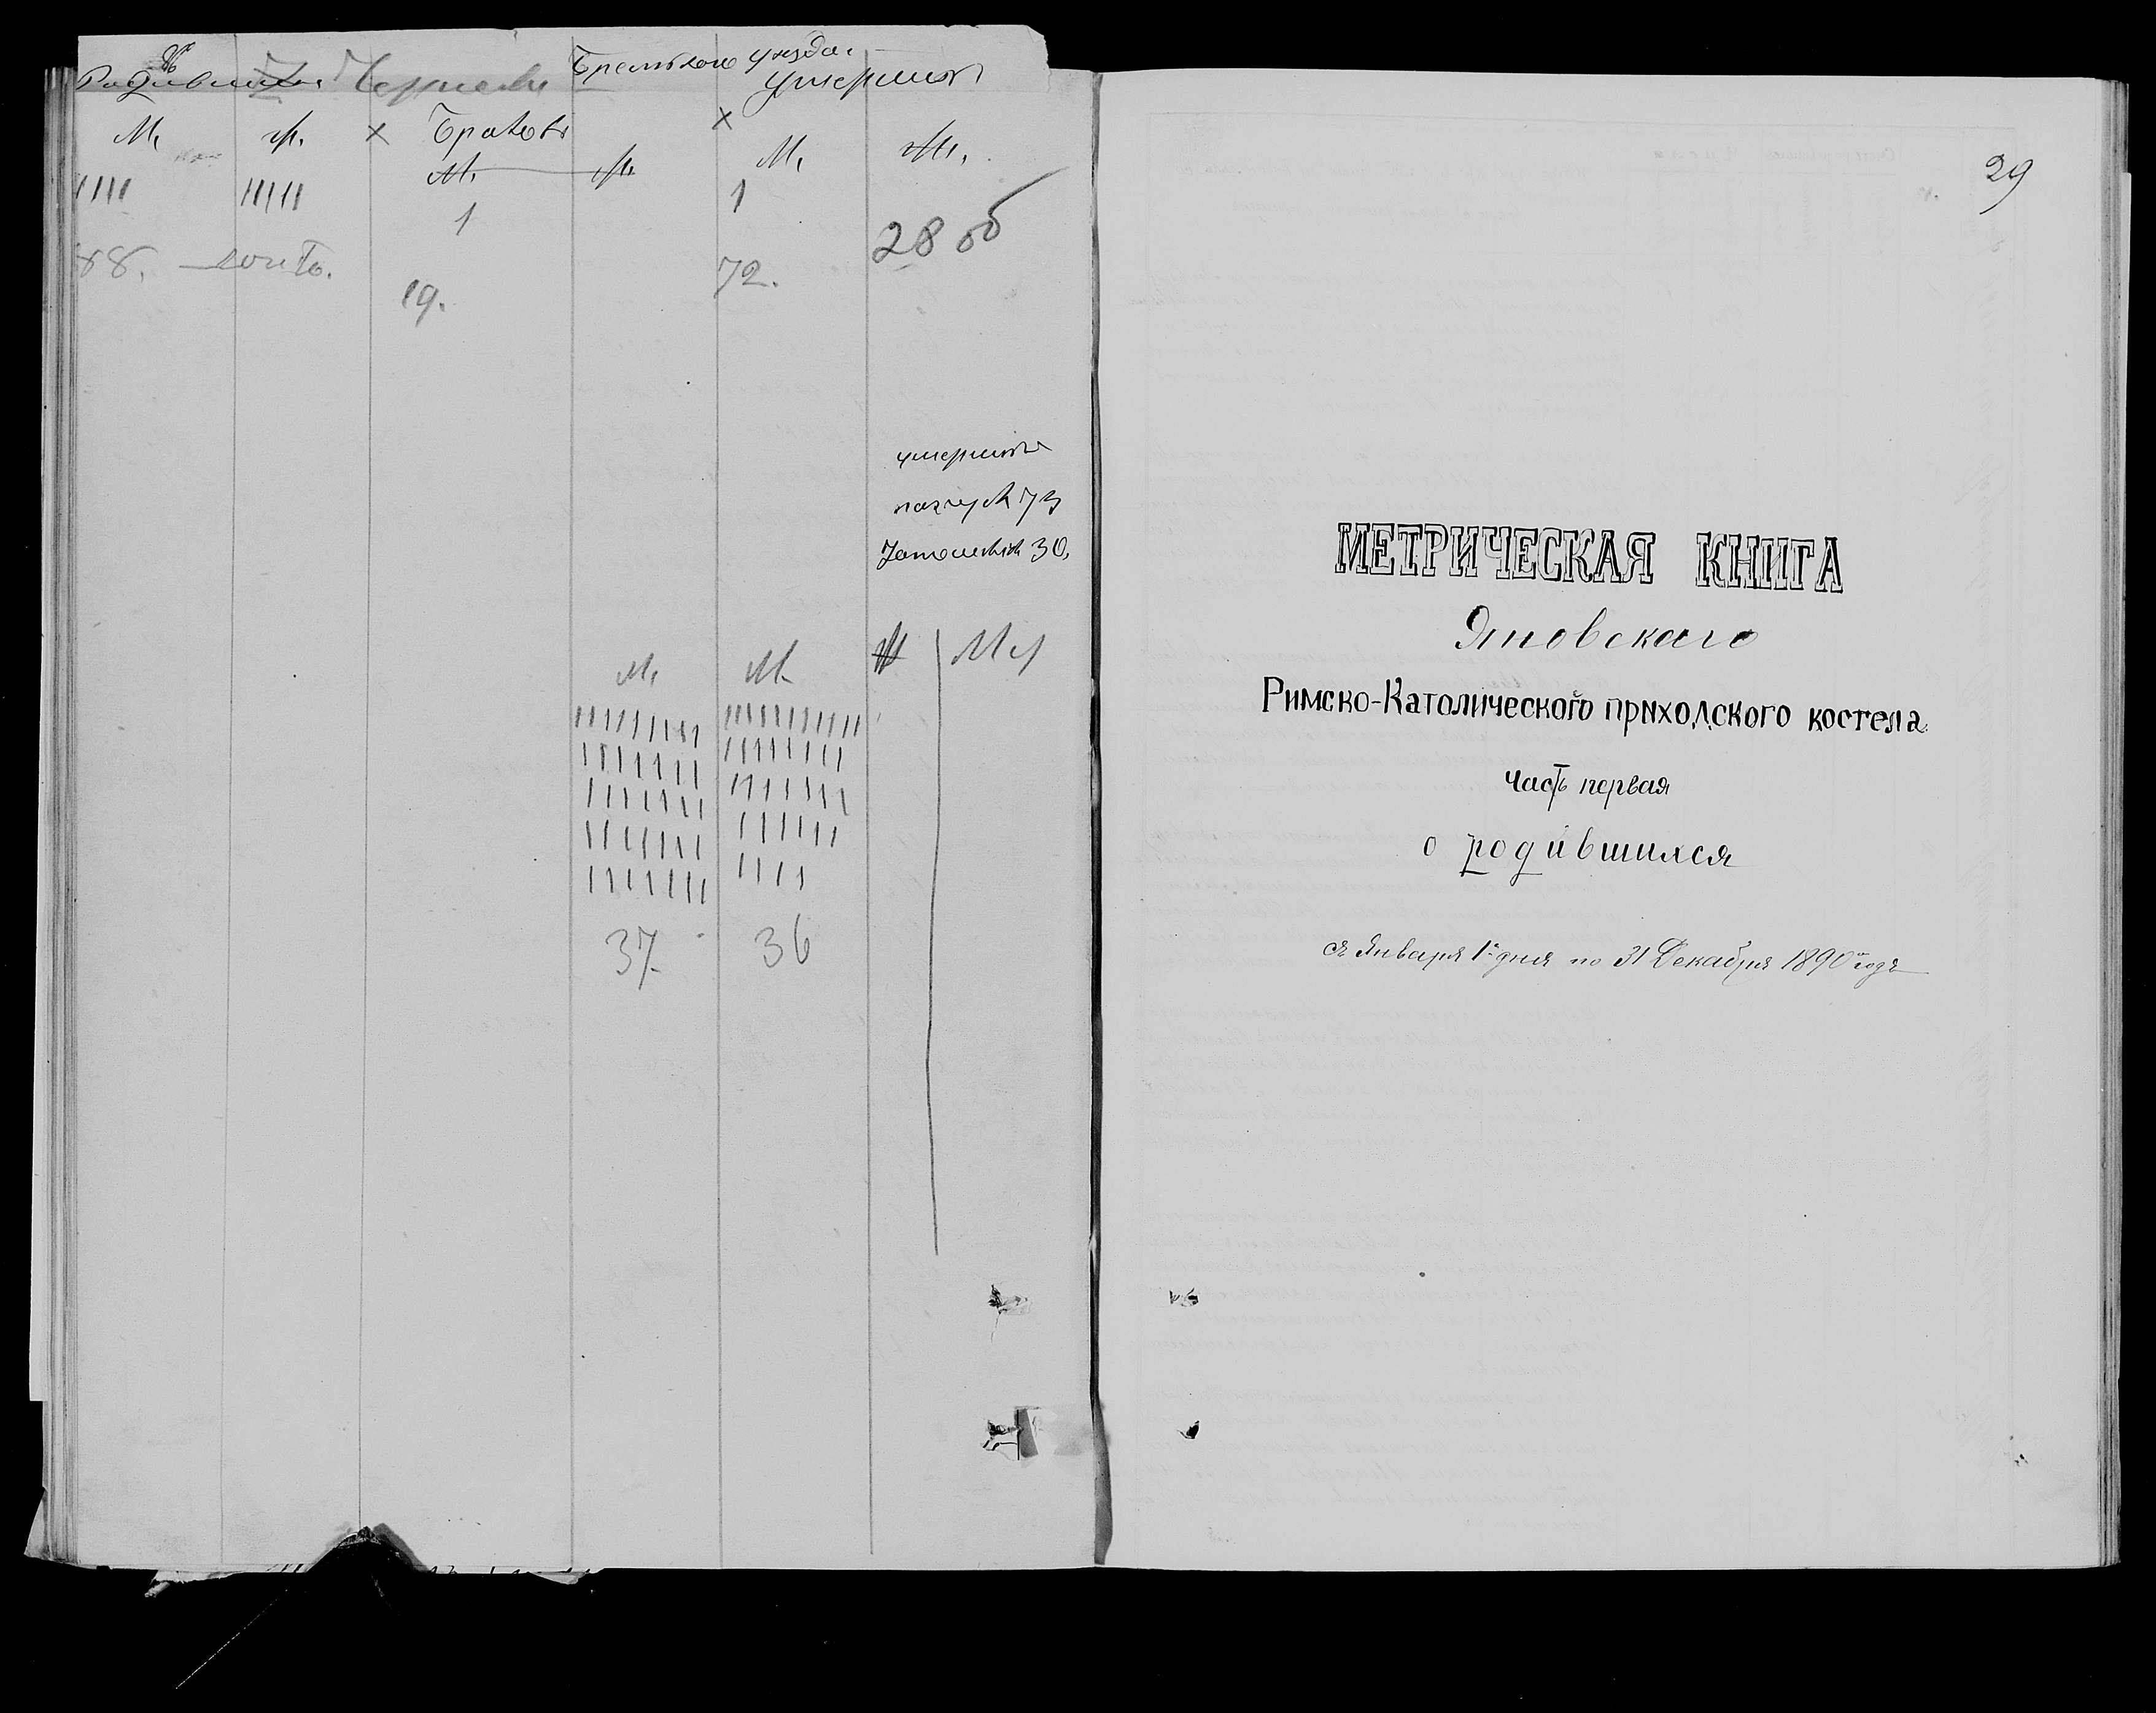 Родившихся
Брестскаго уѣзда.
умершихъ
М. Ж. × Браковъ × М. Ж.
М. Ж.
IIII IIIII 1 1
28 об
19. 72.
умершихъ
30.
М. М. М
IIIIIIIII IIIIIIIIIII
IIIIIII IIIIIIII
IIIIIII IIIIIII
IIIIIII IIIIII
IIIIIII IIII
37. 36
29
МЕТРИЧЕСКАЯ КНИГА
Яновскаго
Римско-Католического приходского костела
Часть первая
о родившихся
съ Января 1го дня по 31 Декабря 1890го года